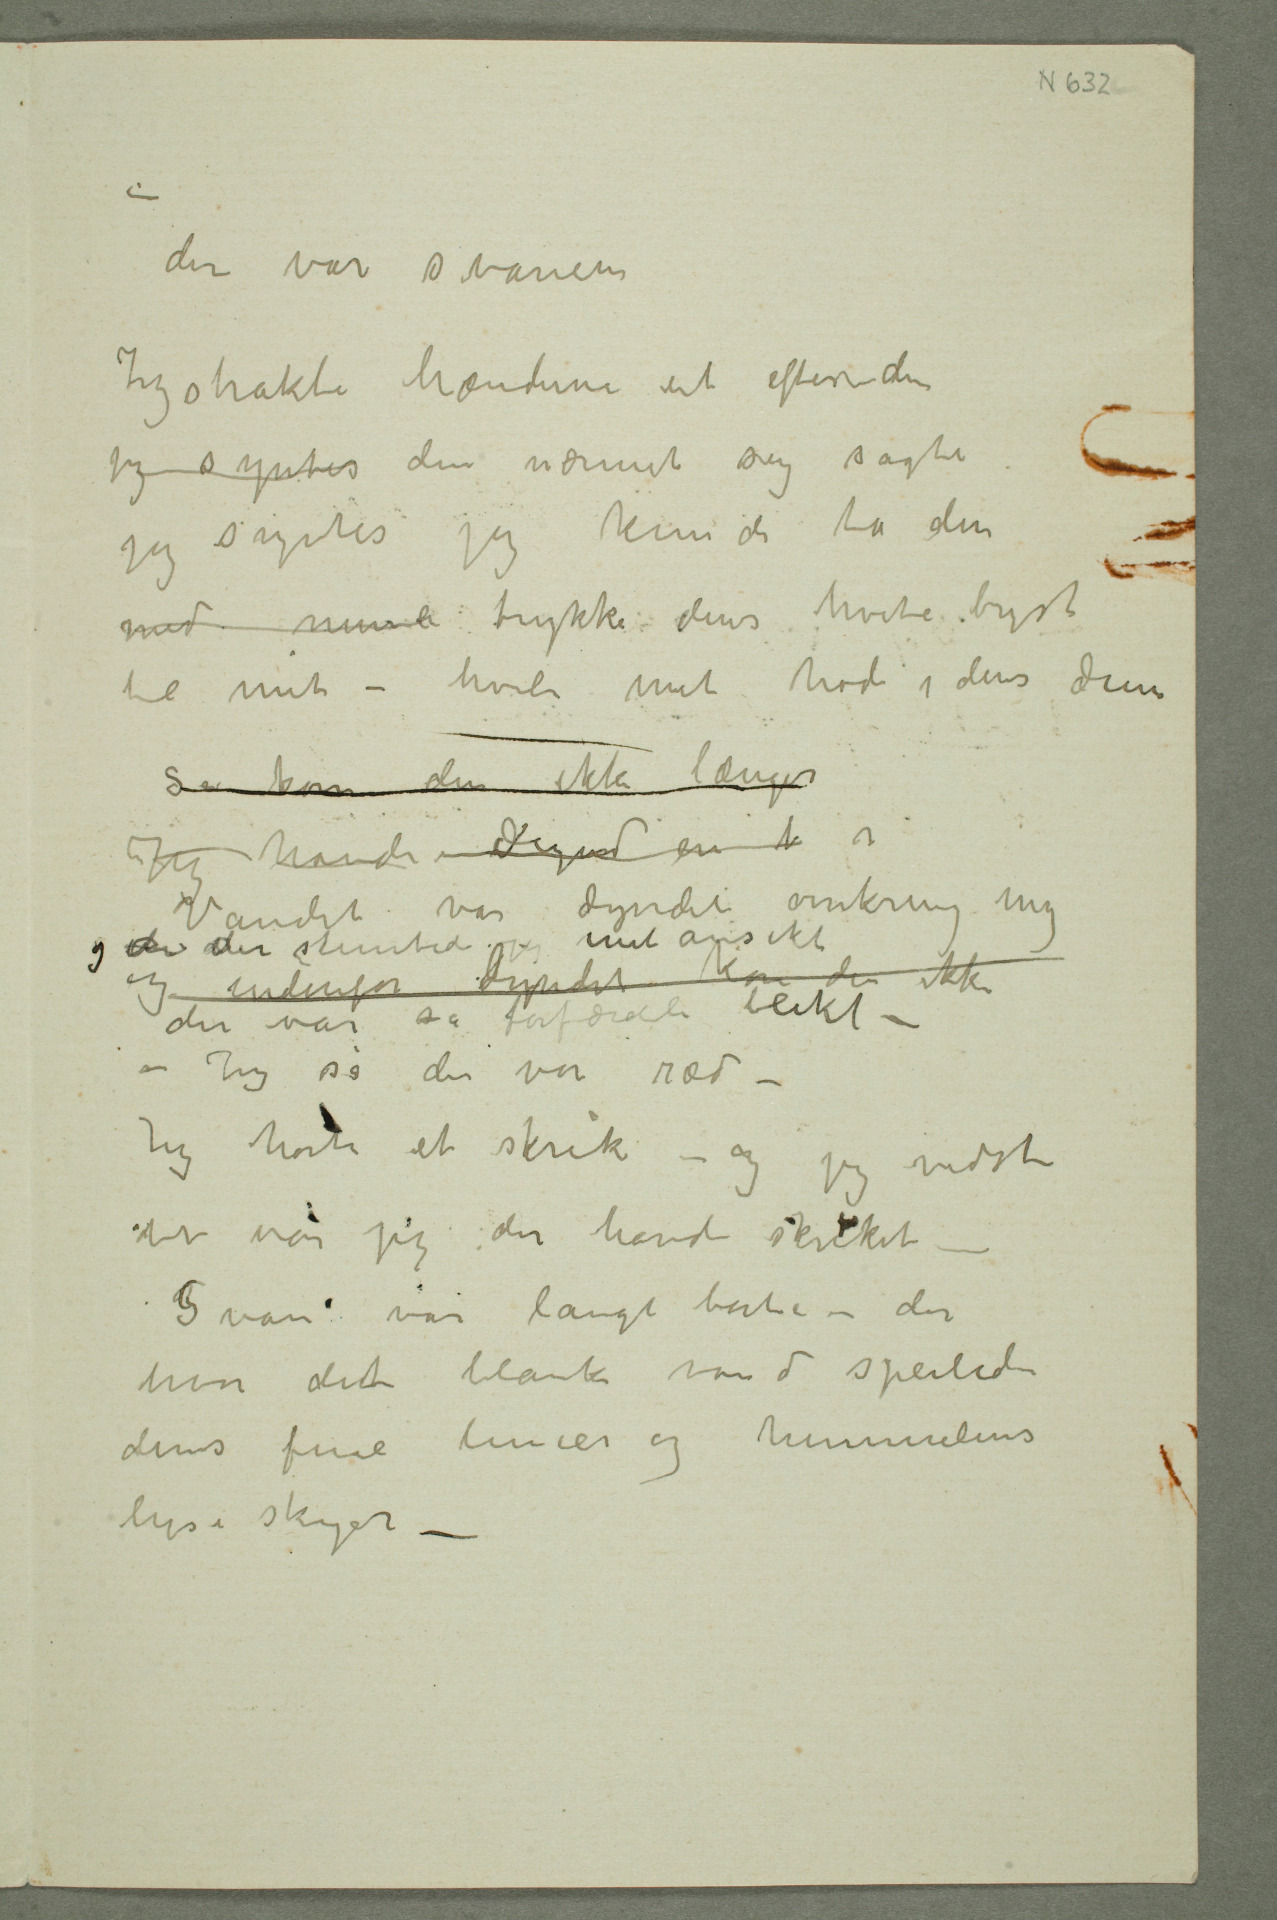 N 632
–
der var svanen
Jeg strakte hænderne ut efter den
jeg syntes den nærmet seg sagte
jeg syntes jeg kunde ta den
med mine trykke dens hvite bryst
til mit – hvile mit hode i dens dun
Så kom den ikke længer
Jeg havde dynd en
Vandet var dyndet omkring mig
og der stirret jeg mit ansikt
og indenfor dyndet kom den ikke
der var så forfærdeli blekt –
– Jeg så der var ræd –
Jeg hørte et skrik – og jeg vidste
det var jeg der havde skreket –
Svan var langt borte – der
hvor det blanke vand speilede
dens fine linier og himmelens
lyse skyer –